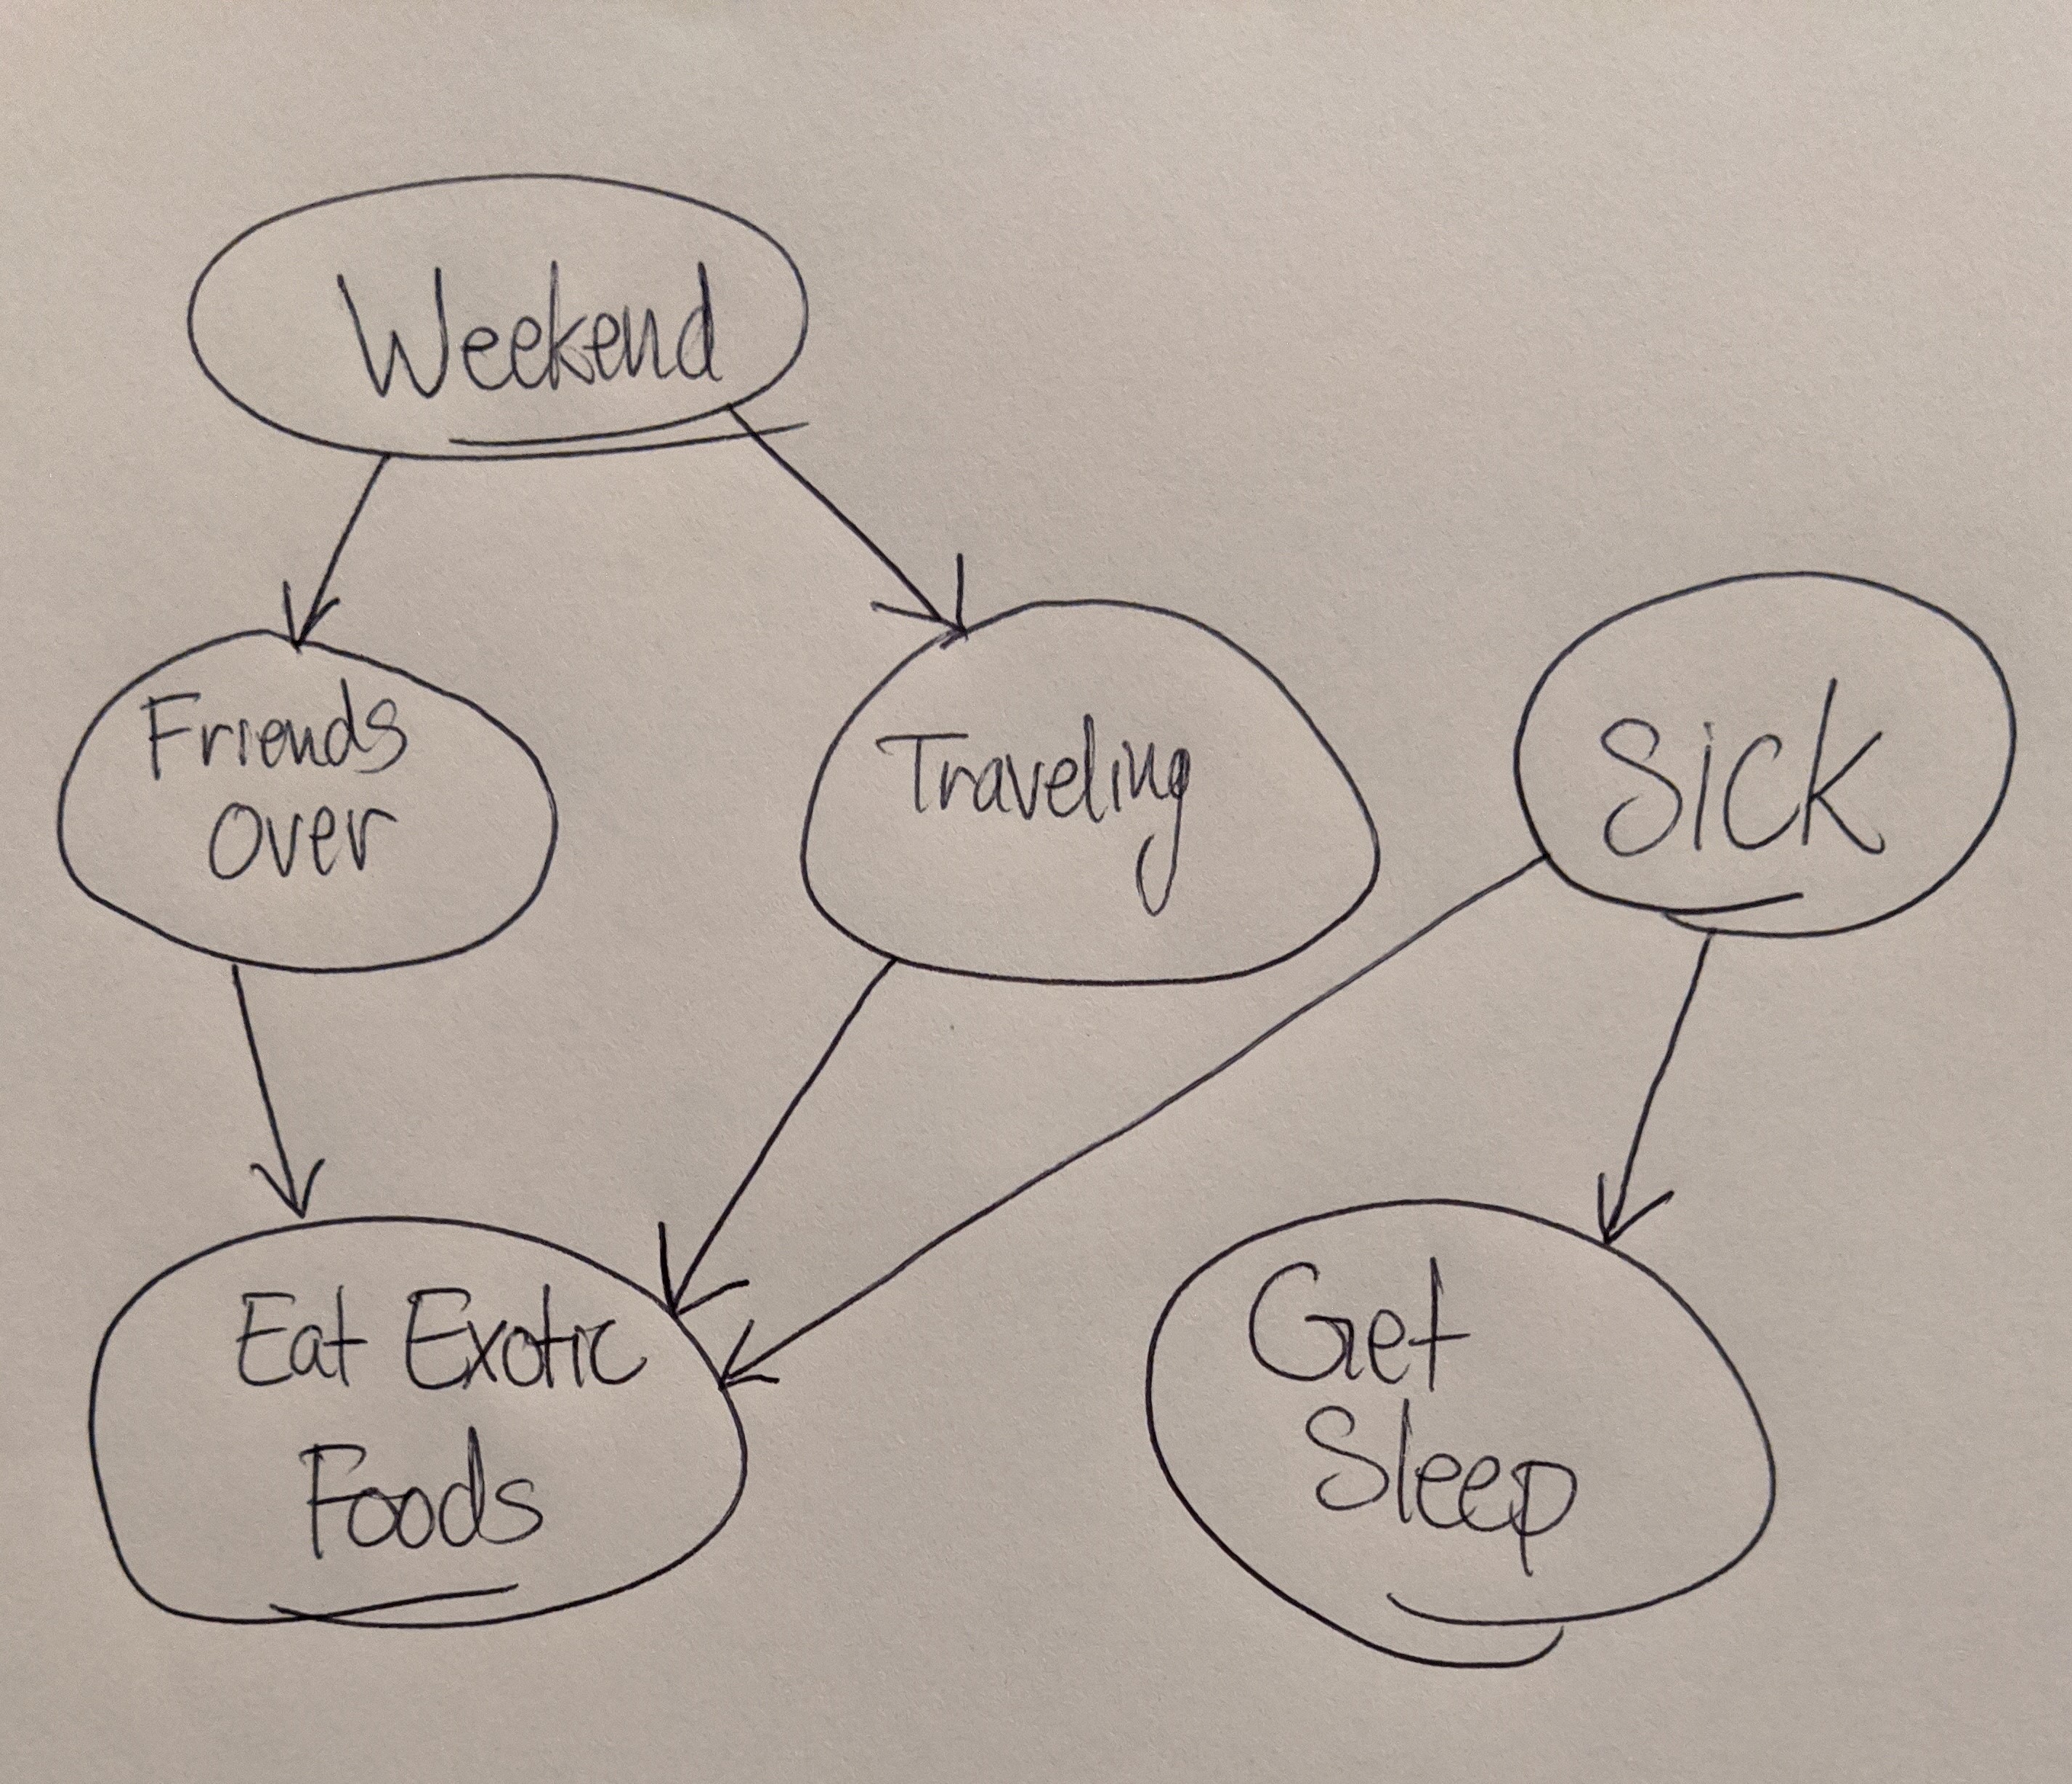 Weekend
Friends
over
Traveling
Sick
Eat Exotic
Foods
Get
Sleep